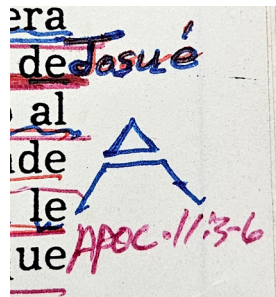 era
de Josué
al
de
le
ue APOC. 11:3-6